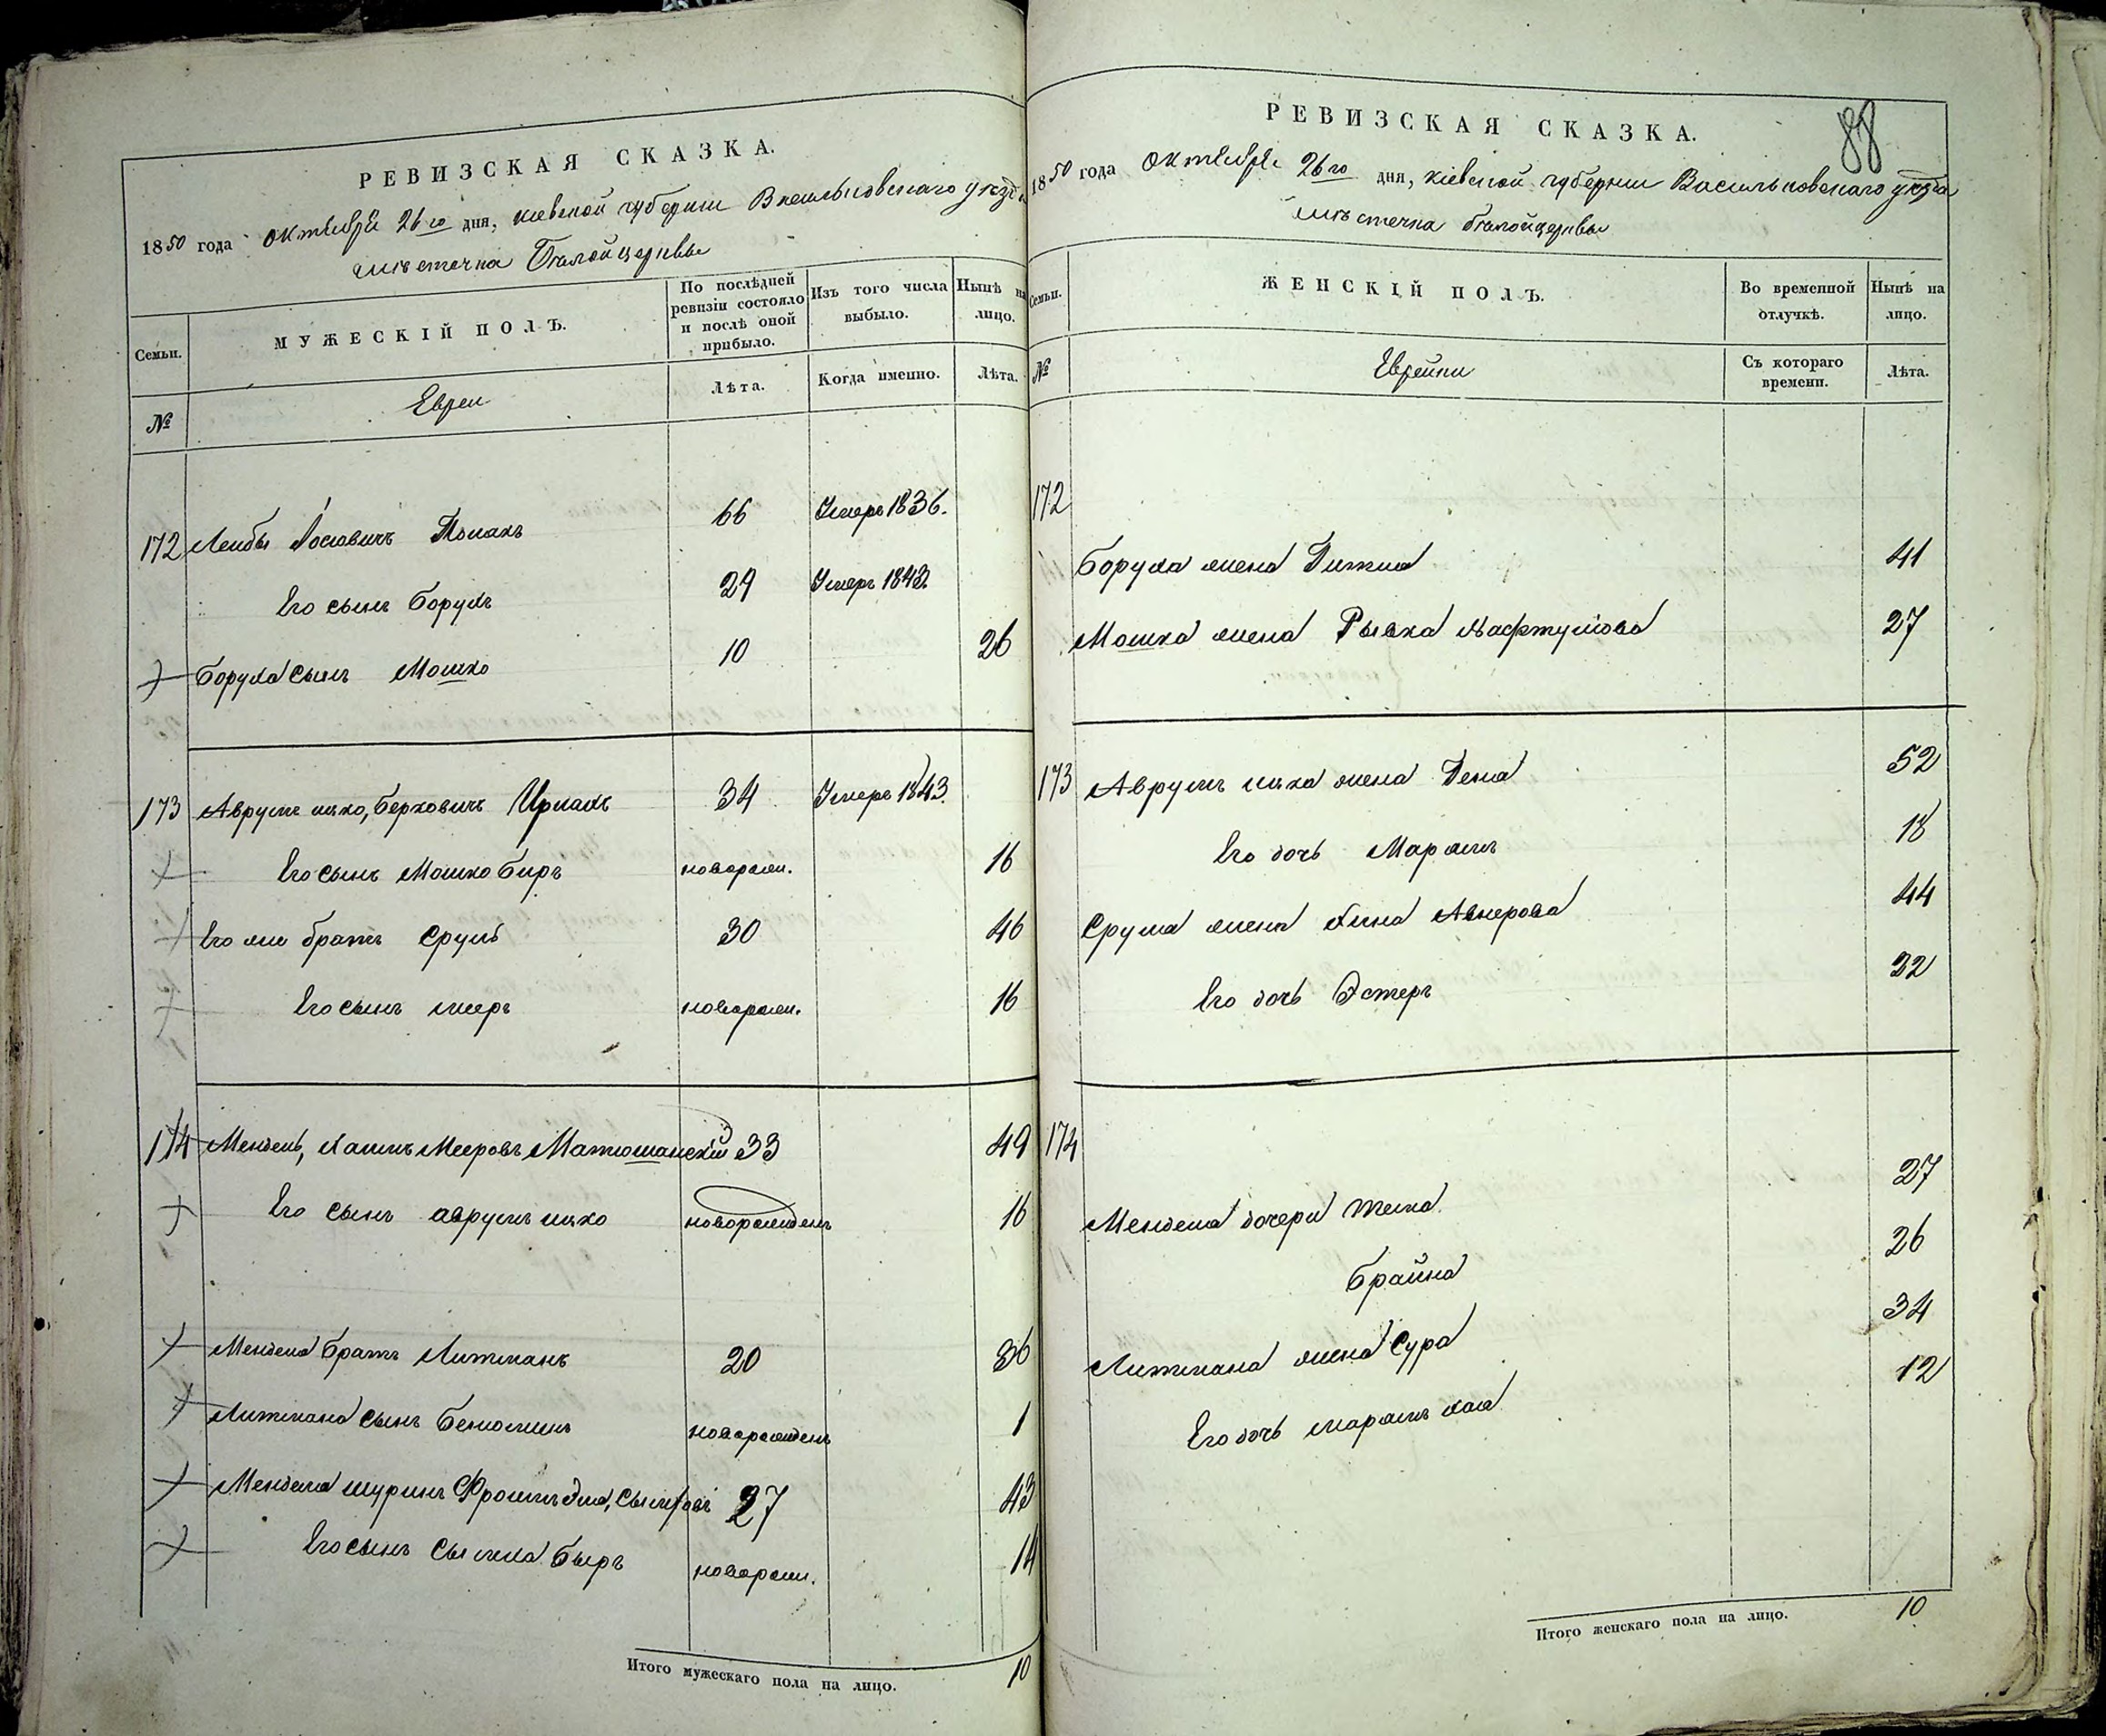 РЕВИЗСКАЯ СКАЗКА.
1850 года Октября 26го дня, Кіевской губерніи Васильковскаго уѣзда
мѣстечка Бѣлойцерквы
Семьи.
МУЖЕСКІЙ ПОЛЪ.
По послѣдней ревизіи состояло и послѣ оной прибыло.
Изъ того числа выбыло.
Нынѣ на лицо.
№
Евреи
Лѣта.
Когда именно.
Лѣта.
172 Лейбы Іосіовичъ 66 Умеръ 1836.
Его сынъ Борухъ 29 Умеръ 1843.
Боруха сынъ Мошко 10 26
173 Аврумъ ицко, Берковичъ 34 Умеръ 1843.
Его сынъ Мошко Биръ новорож. 16
Его же братъ Сруль 30 46
Его сынъ меръ новорож. 16
174 Мендель, Хаимъ Мееровъ Матюшанскій 33 49
Его сынъ аврумъ ицко новорожденъ 16
Менделя братъ Литманъ 20 36
Литмана сынъ Беніоминъ новорожденъ 1
Менделя шуринъ Фроимъ Эля, 27 43
Его сынъ Сымха Быръ новорож. 14
Итого мужескаго пола на лицо. 10
88
РЕВИЗСКАЯ СКАЗКА.
1850 года Октября 26го дня, Кіевской губерніи Васильковскаго уѣзда
мѣстечка Бѣлойцерквы
Семьи.
ЖЕНСКІЙ ПОЛЪ.
Во временной отлучкѣ.
Нынѣ на лицо.
№
Еврейки
Съ котораго времени.
Лѣта.
172
Боруха жена 41
Мошка жена Рывка Нафтулiова 27
173 Аврумъ ицка жена 52
Его дочь Марямъ 18
Сруля жена Авнерова 44
Его дочь Эстеръ 22
174
Менделя дочери 27
Брайна 26
Литмана жена Сура 34
Его дочь марямъ хая 12
Итого женскаго пола на лицо. 10